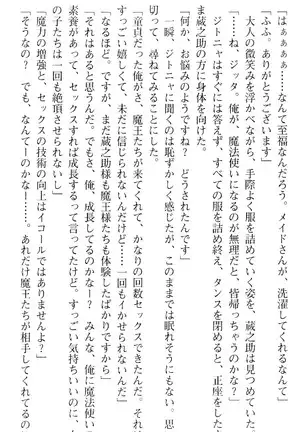 「はぁぁぁ……なんて至福なんだろう。メイドさん、
「ふふ。ありがとうございます」
大人の微笑みを浮かべながら、手際よく服を詰めていく姿を、蔵之助は見つめていた。
「……ね、ジッタ。俺が、魔法使いになるのが無理だと、皆帰っちゃうのかな？」
ジトニャはすぐには答えず、すべての服を詰め終え、タンスを閉めると、正座をしたま
ま蔵之助の方に身体を向けた。
「何か、お悩みのようですね？　どうされたんです」
一瞬、ジトニャに聞くのは恥ずかしく感じたが、このままでは眠れそうにもない。思い
切って、尋ねてみることにした。
「童貞だった俺が、魔王たちが来てくれて、かなりの回数セックスできたんだ。それは
すっごい嬉しくて、未だに信じられないんだけど……一回もイかせられないんだ」
「なるほど。ですが、まだ蔵之助様も魔王様たちも体験したばかりですから」
「それはあると思うんだ。でもさ、俺、成長してるのかな？　みんな、俺に魔法使い
素養があって、セックスすれば成長するって言ってたけど。すっごい気持ちよくて
の子たちは一回も絶頂させられないし」
「魔力の増強と、セックスの技術の向上はイコールではありませんよ？」
「そうなの？　でも、なんてーのかなー……。あれだけ魔王たちが相手してくれてるの